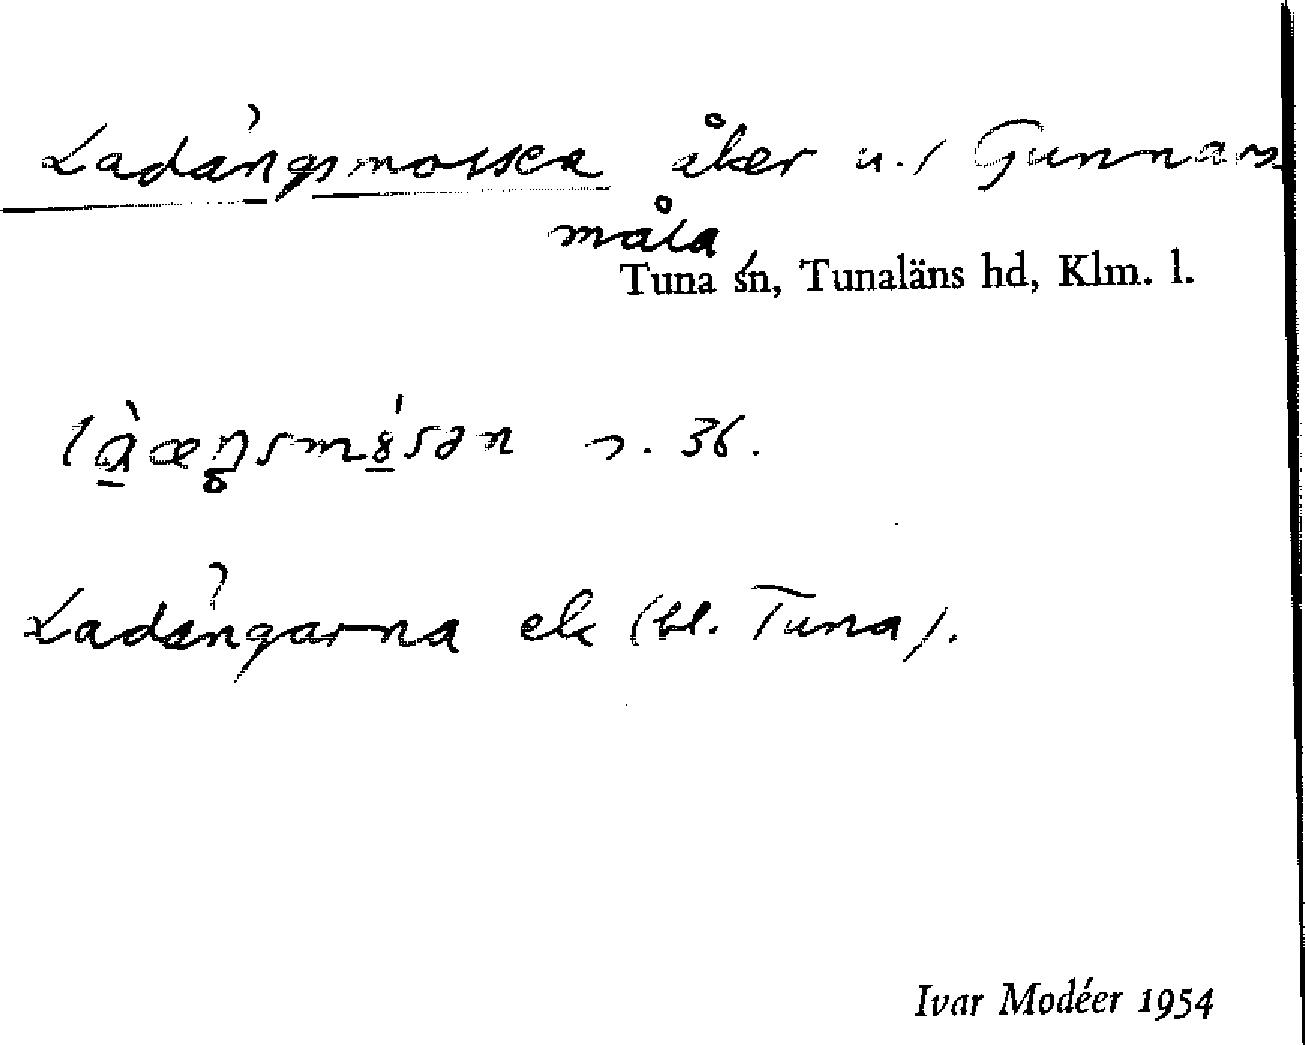 Ladängsmossen åker u./ Gunnars
måla
Tuna sn, Tunaläns hd, Klm. l.
s. 36.
Ladängarna ek (bl. Tuna).
Ivar Modéer 1954